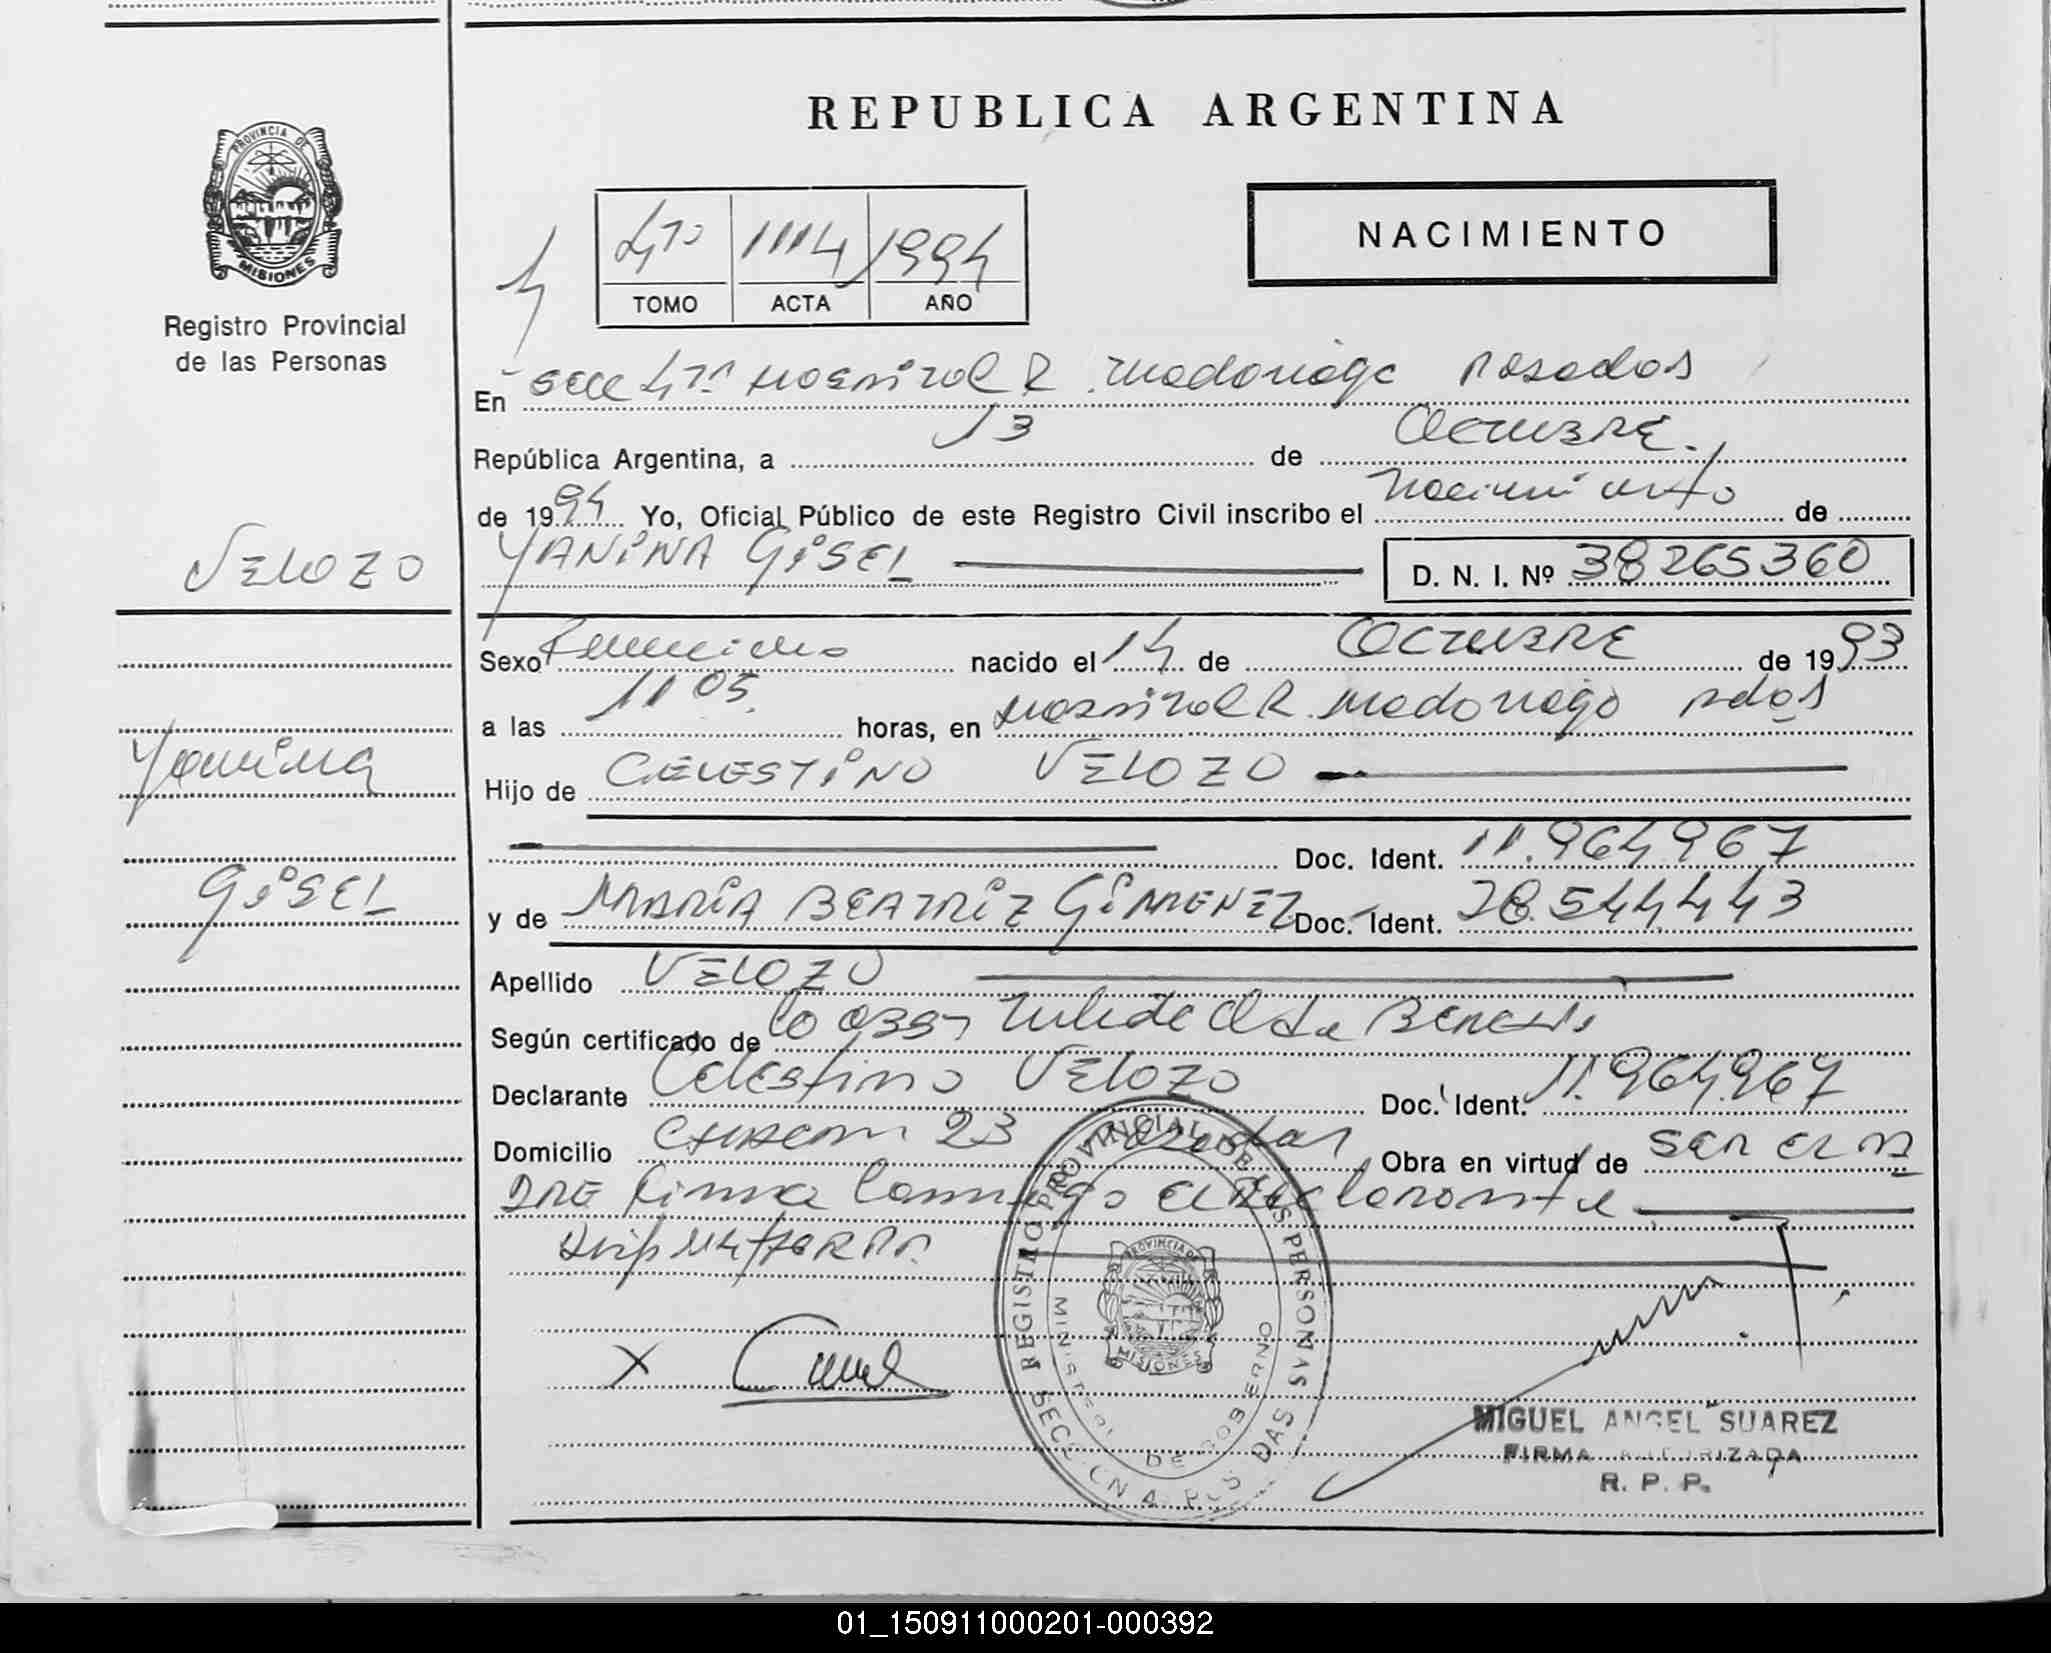 REPUBLICA ARGENTINA
PROVINCIA DE
MISIONES
Registro Provincial
de las Personas
NACIMIENTO
4to 1114 1994
TOMO ACTA AÑO
En Secc 4ta Hospital R. Madariaga Posadas
República Argentina, a 13 de OCTUBRE
de 1994 Yo, Oficial Público de este Registro Civil inscribo el nacimiento de
YANINA GISEL D. N. I. Nº 38265360
VELOZO
Yanina
GISEL
Sexo Femenino nacido el 14 de OCTUBRE de 1993
a las 11 05 horas, en Hospital R. Madariaga Pdas
Hijo de CELESTINO VELOZO
Doc. Ident. 11.964.967
y de MARIA BEATRIZ GIMENEZ Doc. Ident. 28.544.443
Apellido VELOZO
Según certificado de
Declarante Celestino VELOZO Doc. Ident. 11.964.967
Domicilio 23 Posadas Obra en virtud de SER EL PA
DRE Firma Conmigo el Declarante
REGISTRO PROVINCIAL DE LAS PERSONAS
MINISTERIO DE GOBIERNO
PROVINCIA DE
MISIONES
SECCION 4 POSADAS
X
MIGUEL ANGEL SUAREZ
FIRMA AUTORIZADA
R. P. P.
01_150911000201-000392